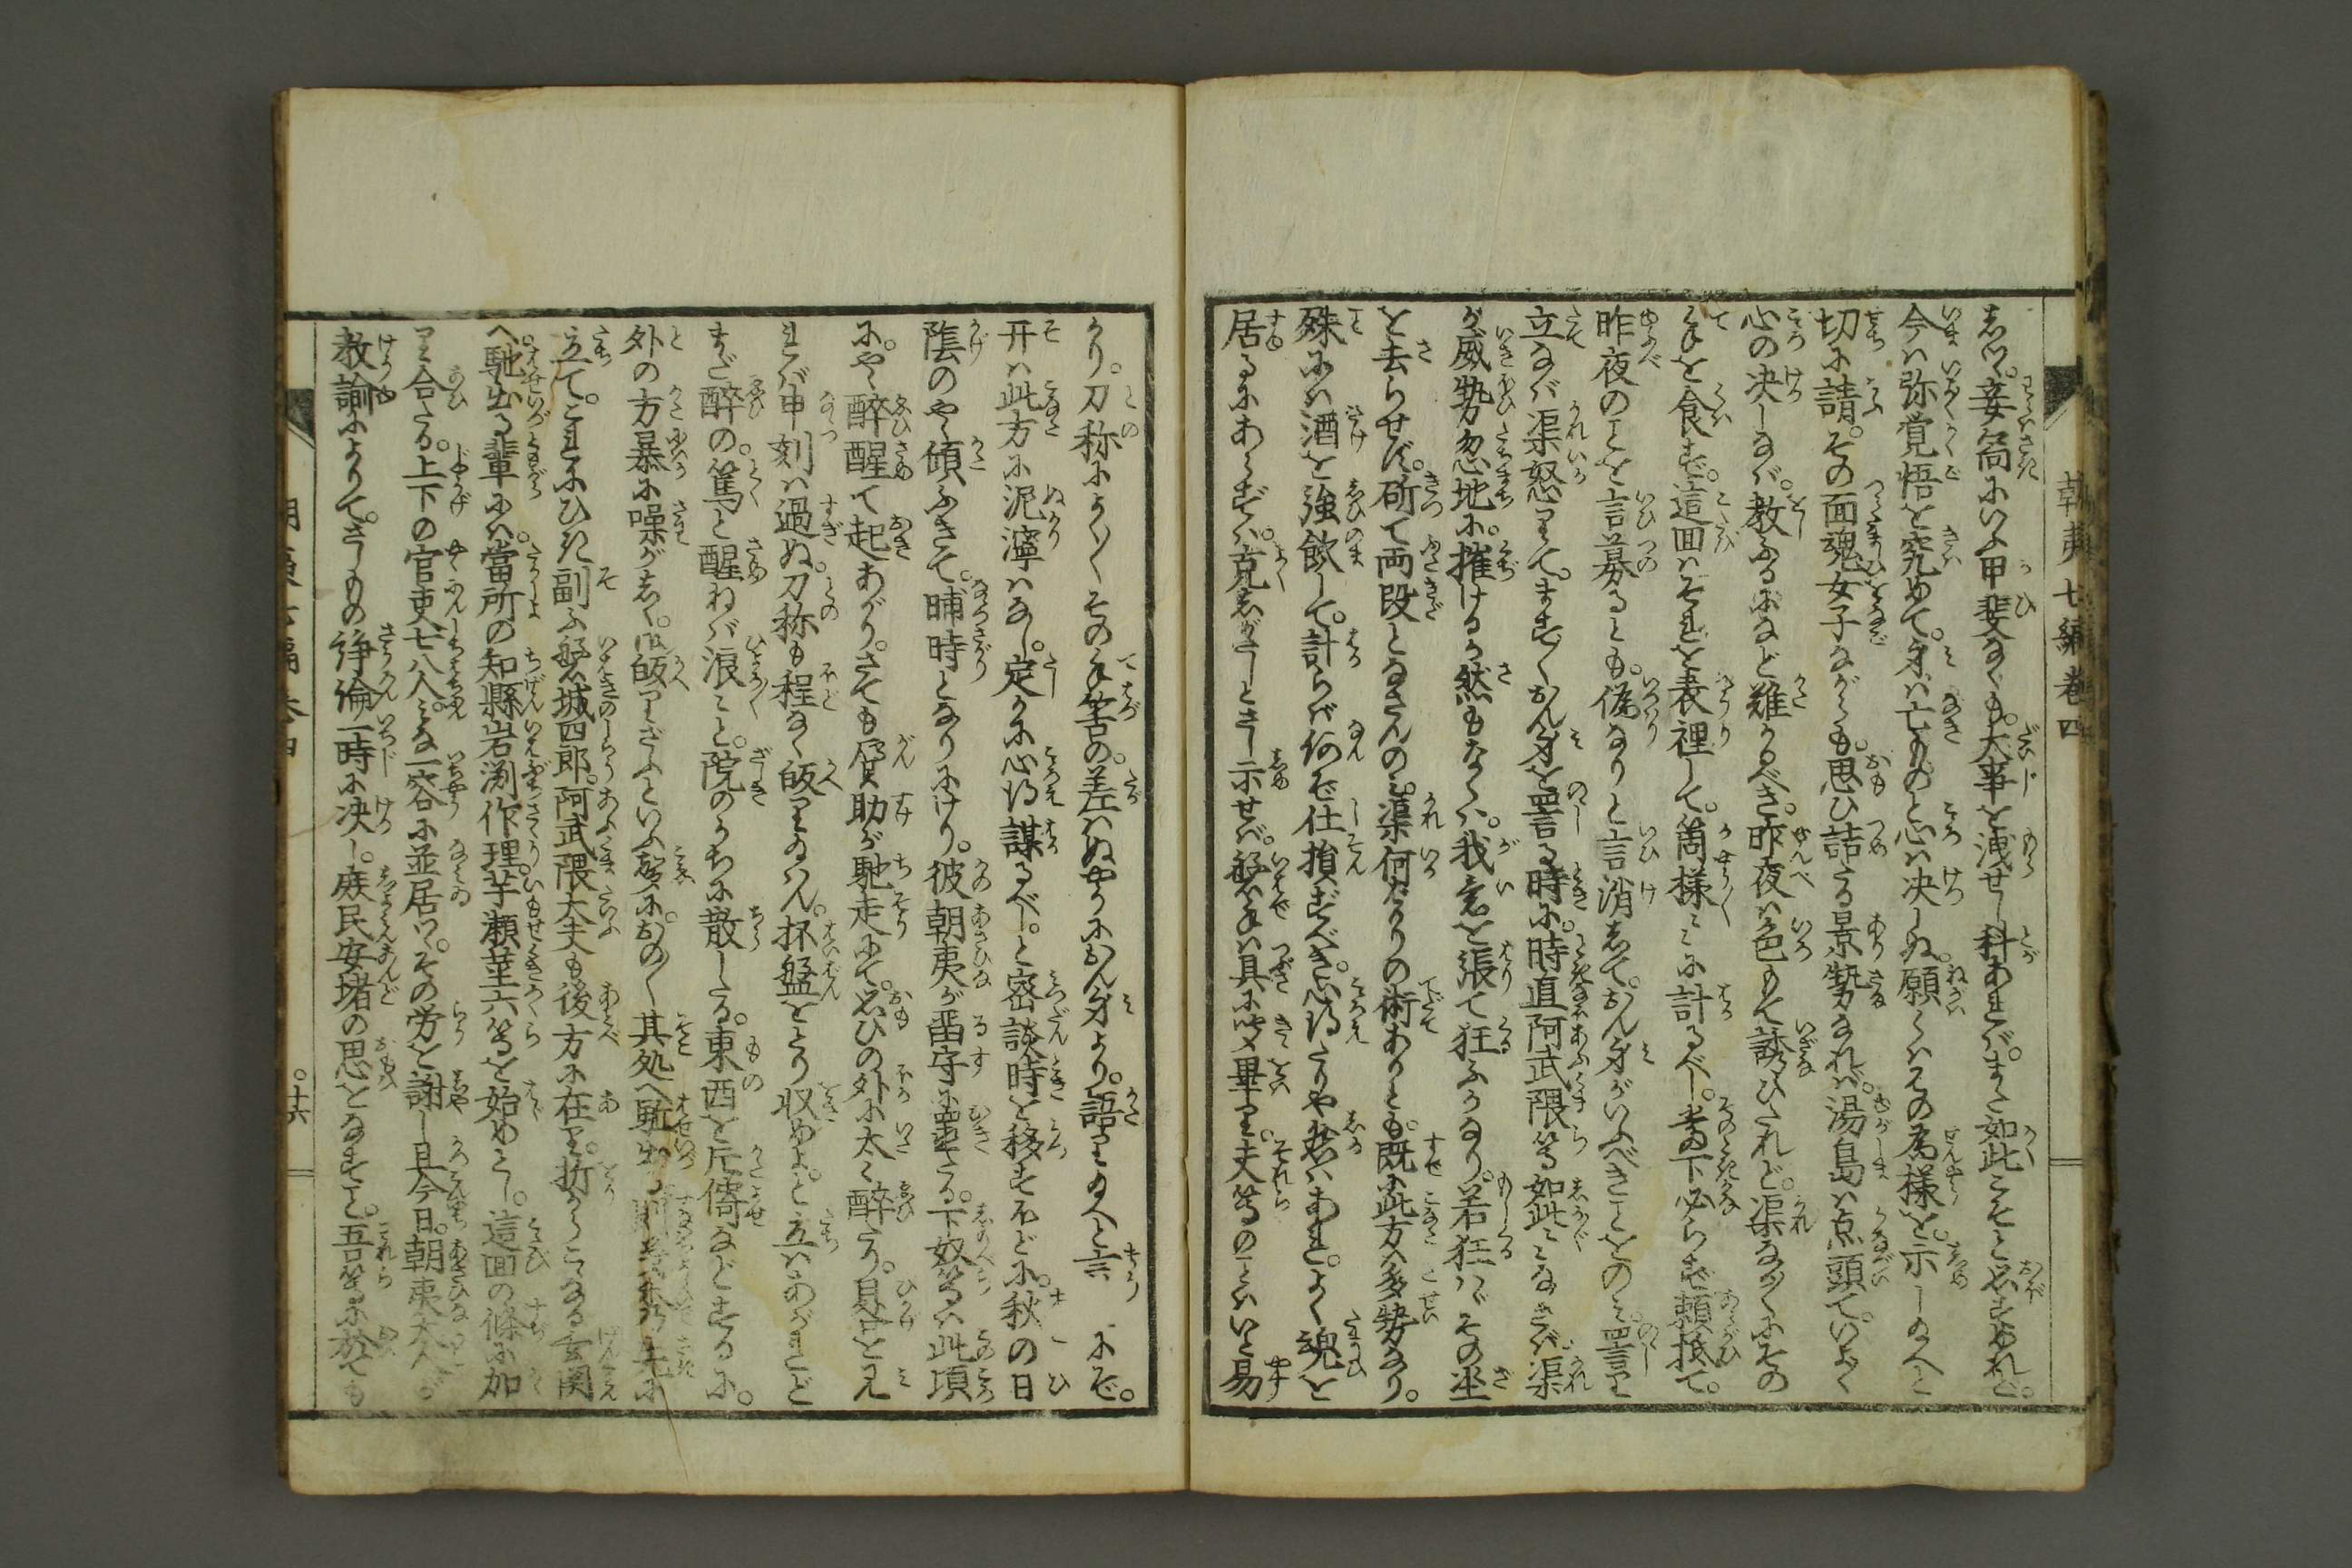 朝夷七編巻四
しつ。妾等にいふ甲斐なくも。大事を洩せし科あれば。また如此こそと思すめれど。
今は弥覚悟を究めて。身は亡ものと心は決しぬ。願くはその為様を。示し給へと
切に請。その面魂女子ながらも。思ひ詰たる景勢なれば。湯島は点頭て。いよく
心の決しなば。教ふるになど難かるべき。昨夜は色もて誘ひたれど。渠なかくにその
手を食ず。這回はそれを表裡して。箇様々々に計るべし。当下必らず頼抵て。
昨夜のことを言募るとも。偽なりと言消して。おん身がいふべきことをのみ。罵り
立なば渠怒りて。ますくおん身を罵る時に。時直阿武隈等如此々々なさば渠
が威勢忽地に。摧けるか然もなくは。我意を張て狂ふかなり。若狂はゞその坐
を去らせず。斫て両段となさんのみ。渠何ばかりの術ありとも。既に此方は多勢なり。
殊には酒を強飲して。計らば何で仕損ずべき。心得たりや然はあれ。よく魂を
居るにあらずは。克しがたしとさし示せば。磐手は具に聞畢り。夫等のことはいと易
かり。刀称によくその手筈の。差はぬやうにおん身より。語り給へと言にぞ。
开は此方に泥濘はなし。定かに心得謀るべし。と密談時を移すほどに。秋の日
陰のやゝ傾ふきて。晡時となりにけり。彼朝夷が留守に置たる。下奴等は此頃
に。やゝ醉醒て起あがり。さても眉助が馳走にて。思ひの外に太く醉たり。日を見
れば申刻は過ぬ。刀称も程なく皈り給はん。杯盤をとり収めよ。と立はあがれど
まだ醉の。篤と醒ねば浪々と。院のうちに散したる。東西を片倚などするに。
外の方暴に噪がしく。皈りぞといふ聲に。おのく其処へ駈出
立て。これにひき副ふ磐城四郎。阿武隈大夫も後方に在り。折からこなる玄関
へ馳出る輩には。當所の知縣岩渕作理。芋瀬莖六等を始めとし。這回の條に加
り合たる。上下の官吏七八人。みな一容に並居つ。その労を謝し且今日。朝夷大人が
教諭によりて。さしもの諍論一時に决し。庶民安堵の思をなすこと。吾等に於ても
十六